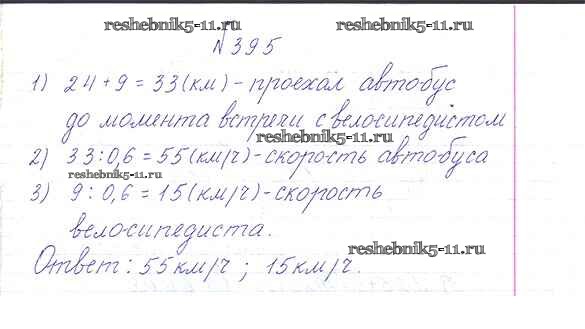 reshebnik5-11.ru reshebnik5-11.ru
№395
1) 24+9=33(км)-проехал автобус
до момента встречи с велосипедистом
reshebnik5-11.ru
2) 33:0,6=55(км/ч)-скорость автобуса
reshebnik5-11.ru
3) 9:0,6=15(км/ч)-скорость
велосипедиста.
reshebnik5-11.ru
Ответ: 55км/ч; 15км/ч.